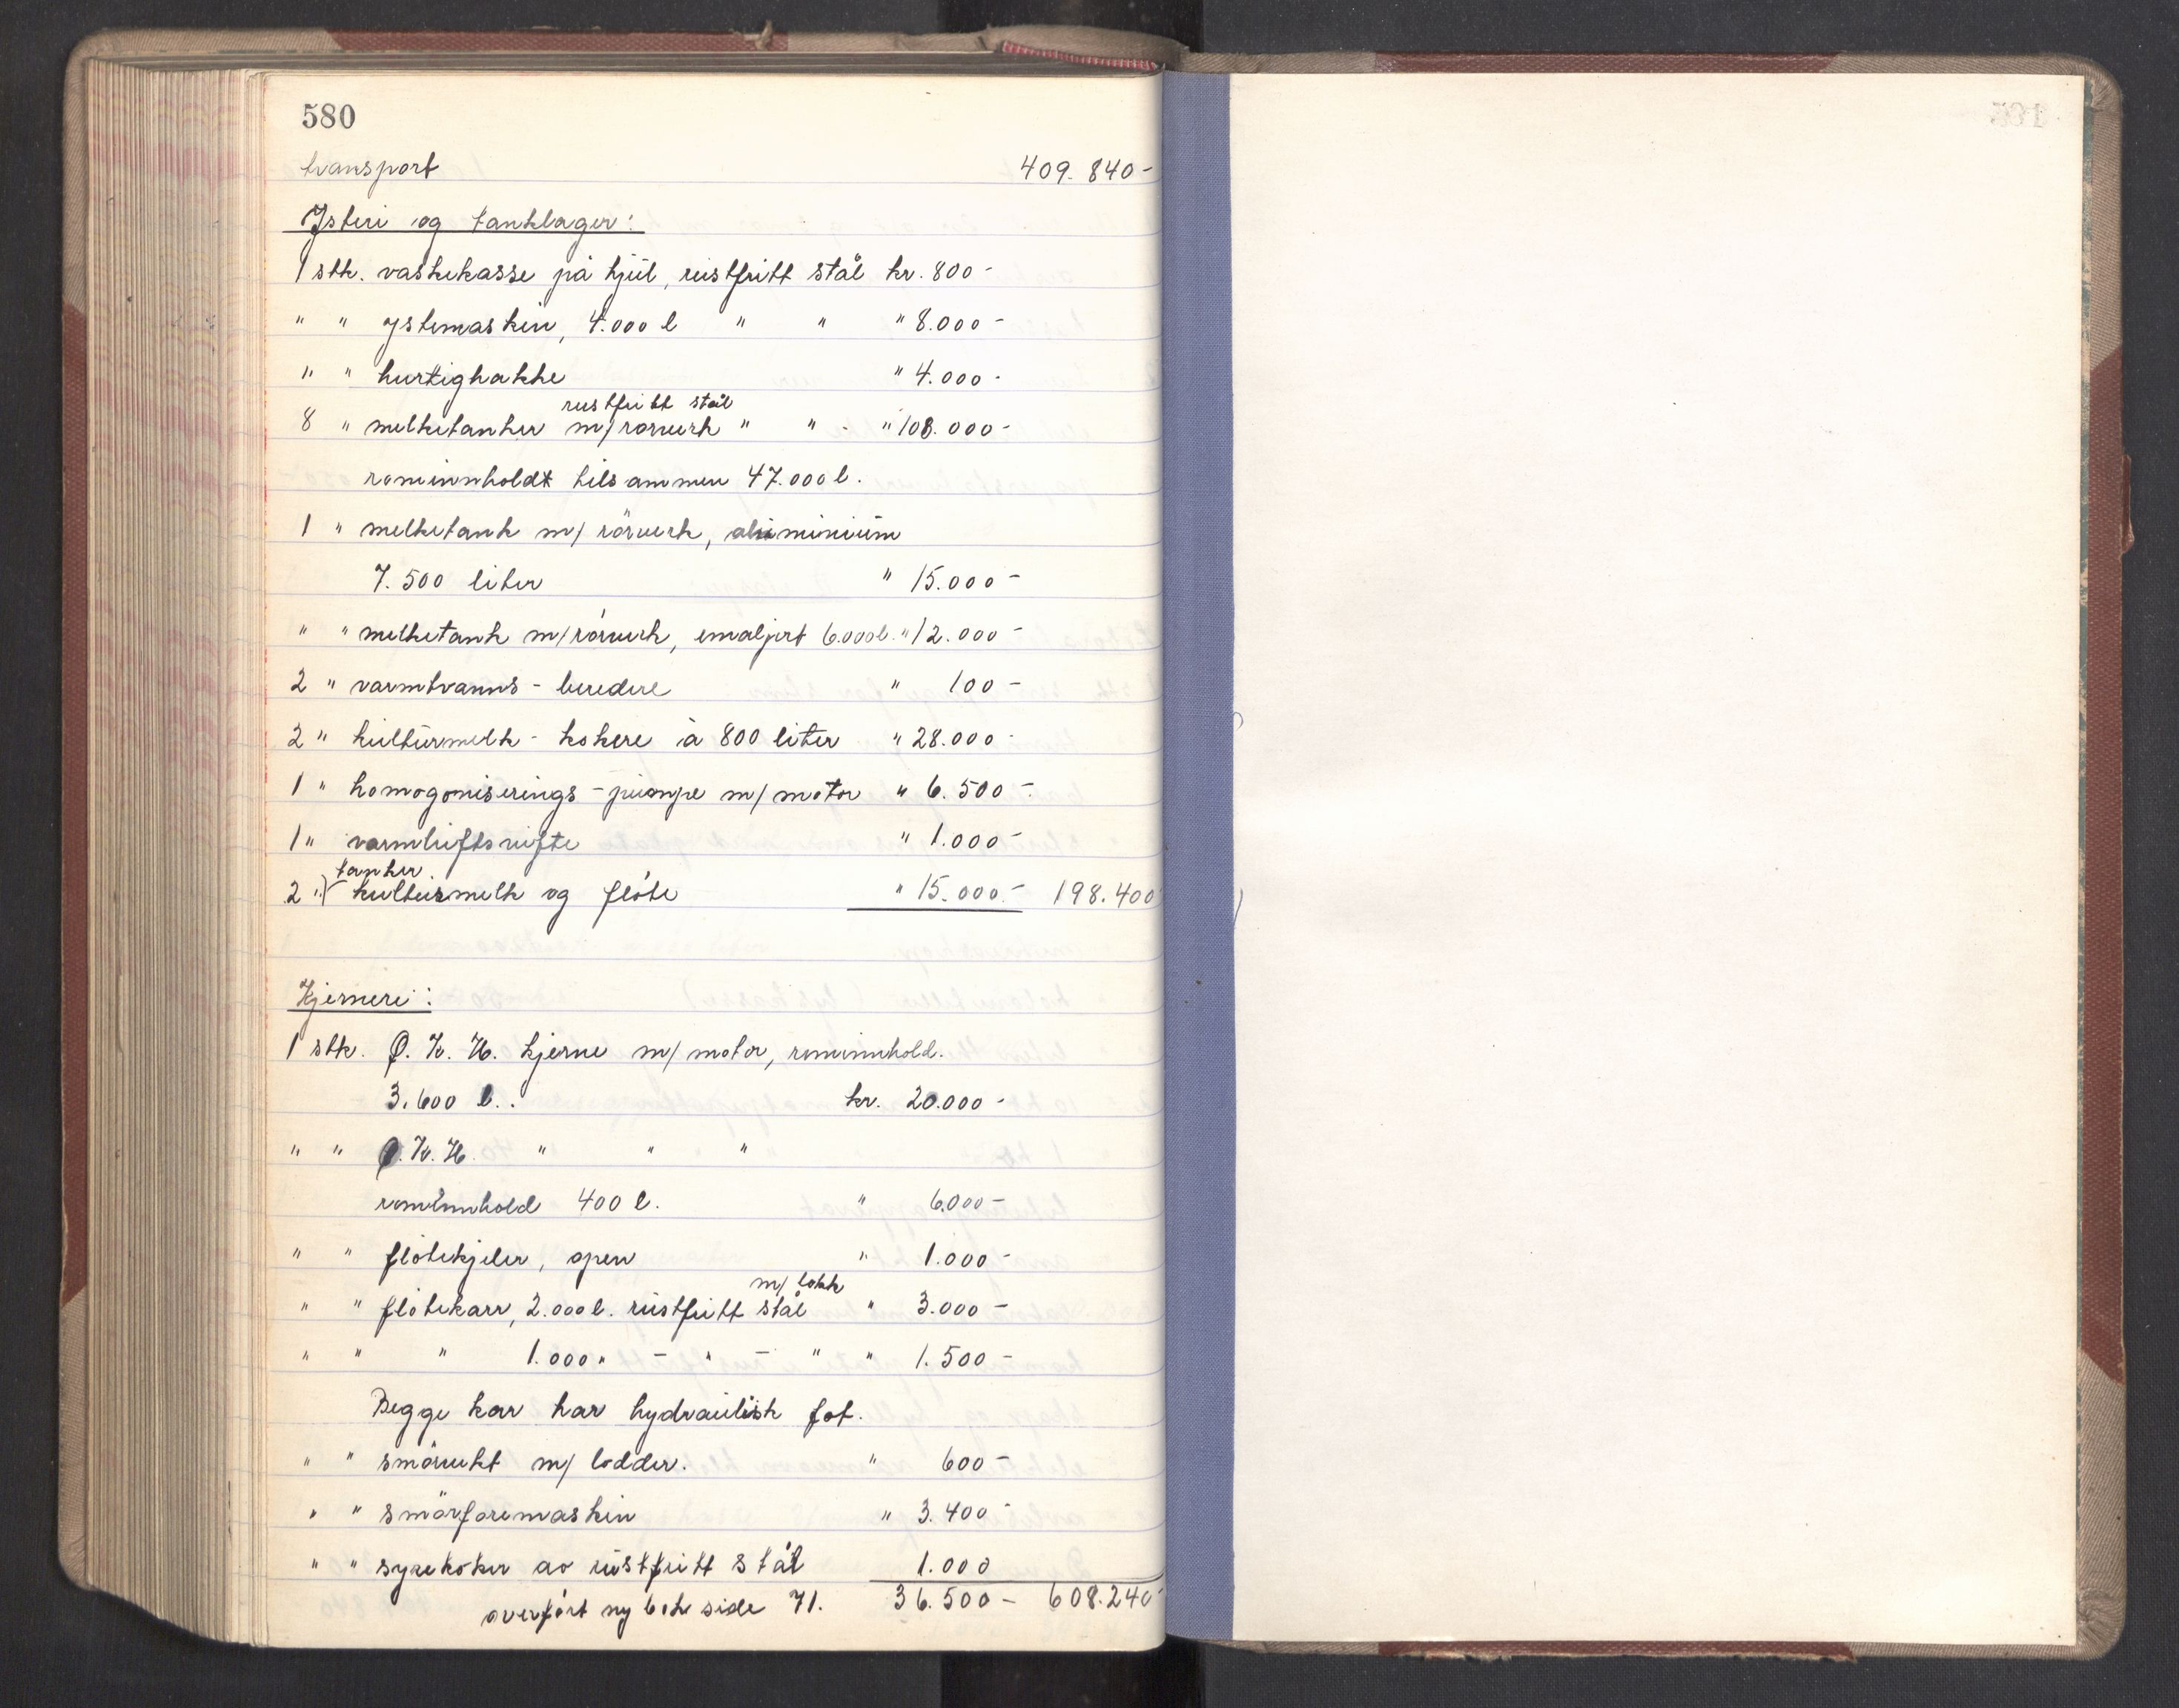 580
transport 409.840-
Ysteri og tanklager:
1 stk. vaskekasse på hjul, rustfritt stål kr. 800-
" " ystemaskin, 4.000 l " " " 8.000-
" " hurtighakke " 4.000-
rustfritt stål
8 " melketanker m/rörverk " " - " 108.000-
rominnholdt tilsammen 47.000 l.
1 " melketank m/ rörverk, aluminium
7.500 liter " 15.000-
" " melketank m/rörverk, emaljert 6.000 l. " 12.000-
2 " varmtvanns - beredere " 100-
2 " kulturmelk - kokere à 800 liter " 28.000-
1 " homogoniserings - pumpe m/ motor " 6.500-
1 " varmluftsvifte " 1.000-
tanker.
2 " kulturmelk og flöte " 15.000.- 198.400
Kjerneri:
1 stk. Ø.K.H. kjerne m/ motor, rominnhold.
3.600 l.. kr. 20.000-
" " Ø.K.H. " " "
rominnhold 400 l. " 6.000-
" " flötekjeler, open " 1.000-
m/ lokk
" " flötekarr, 2.000 l. rustfritt stål " 3.000-
" " " 1.000 " - " - " " 1.500-
Begge kar har hydraulisk fot.
" " smörvekt m/ lodder. " 600-
" " smörforemaskin " 3.400-
" " syrekoker av rustfritt stål 1.000
overfört ny bok side 71. 36.500- 608.240-